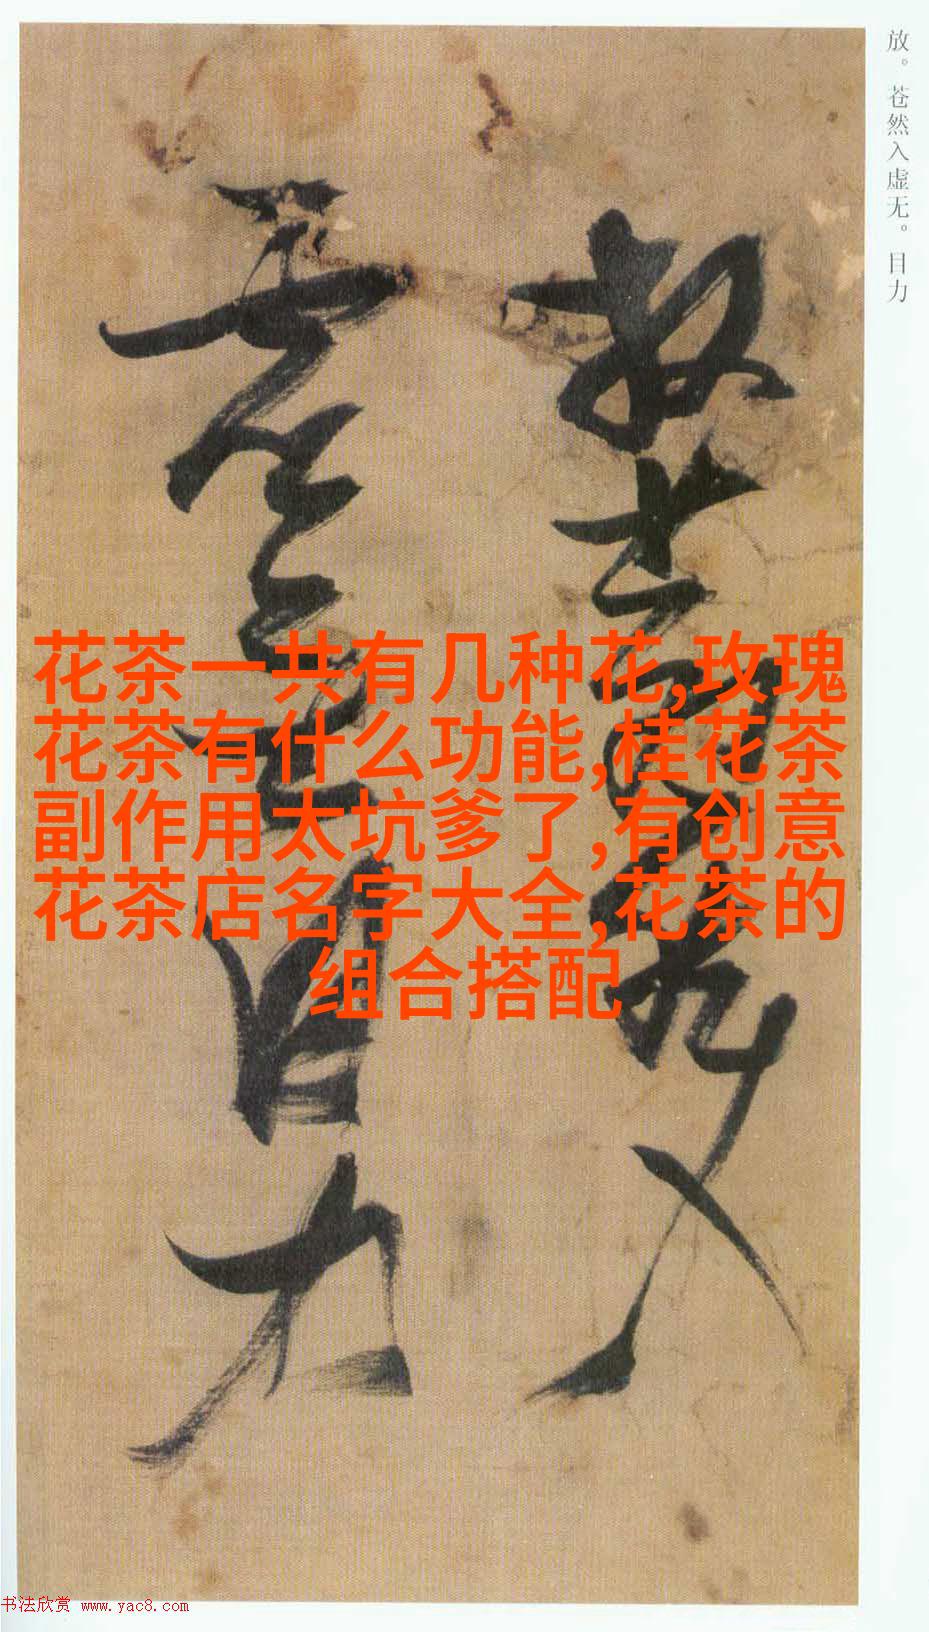 放。苍然入虚无。目力
放苍然入
虚无目力
花茶一共有几种花,玫瑰
花茶有什么功能,桂花茶
副作用太坑爹了,有创意
花茶店名字大全,花茶的
组合搭配
书法欣赏 www.yac8.com